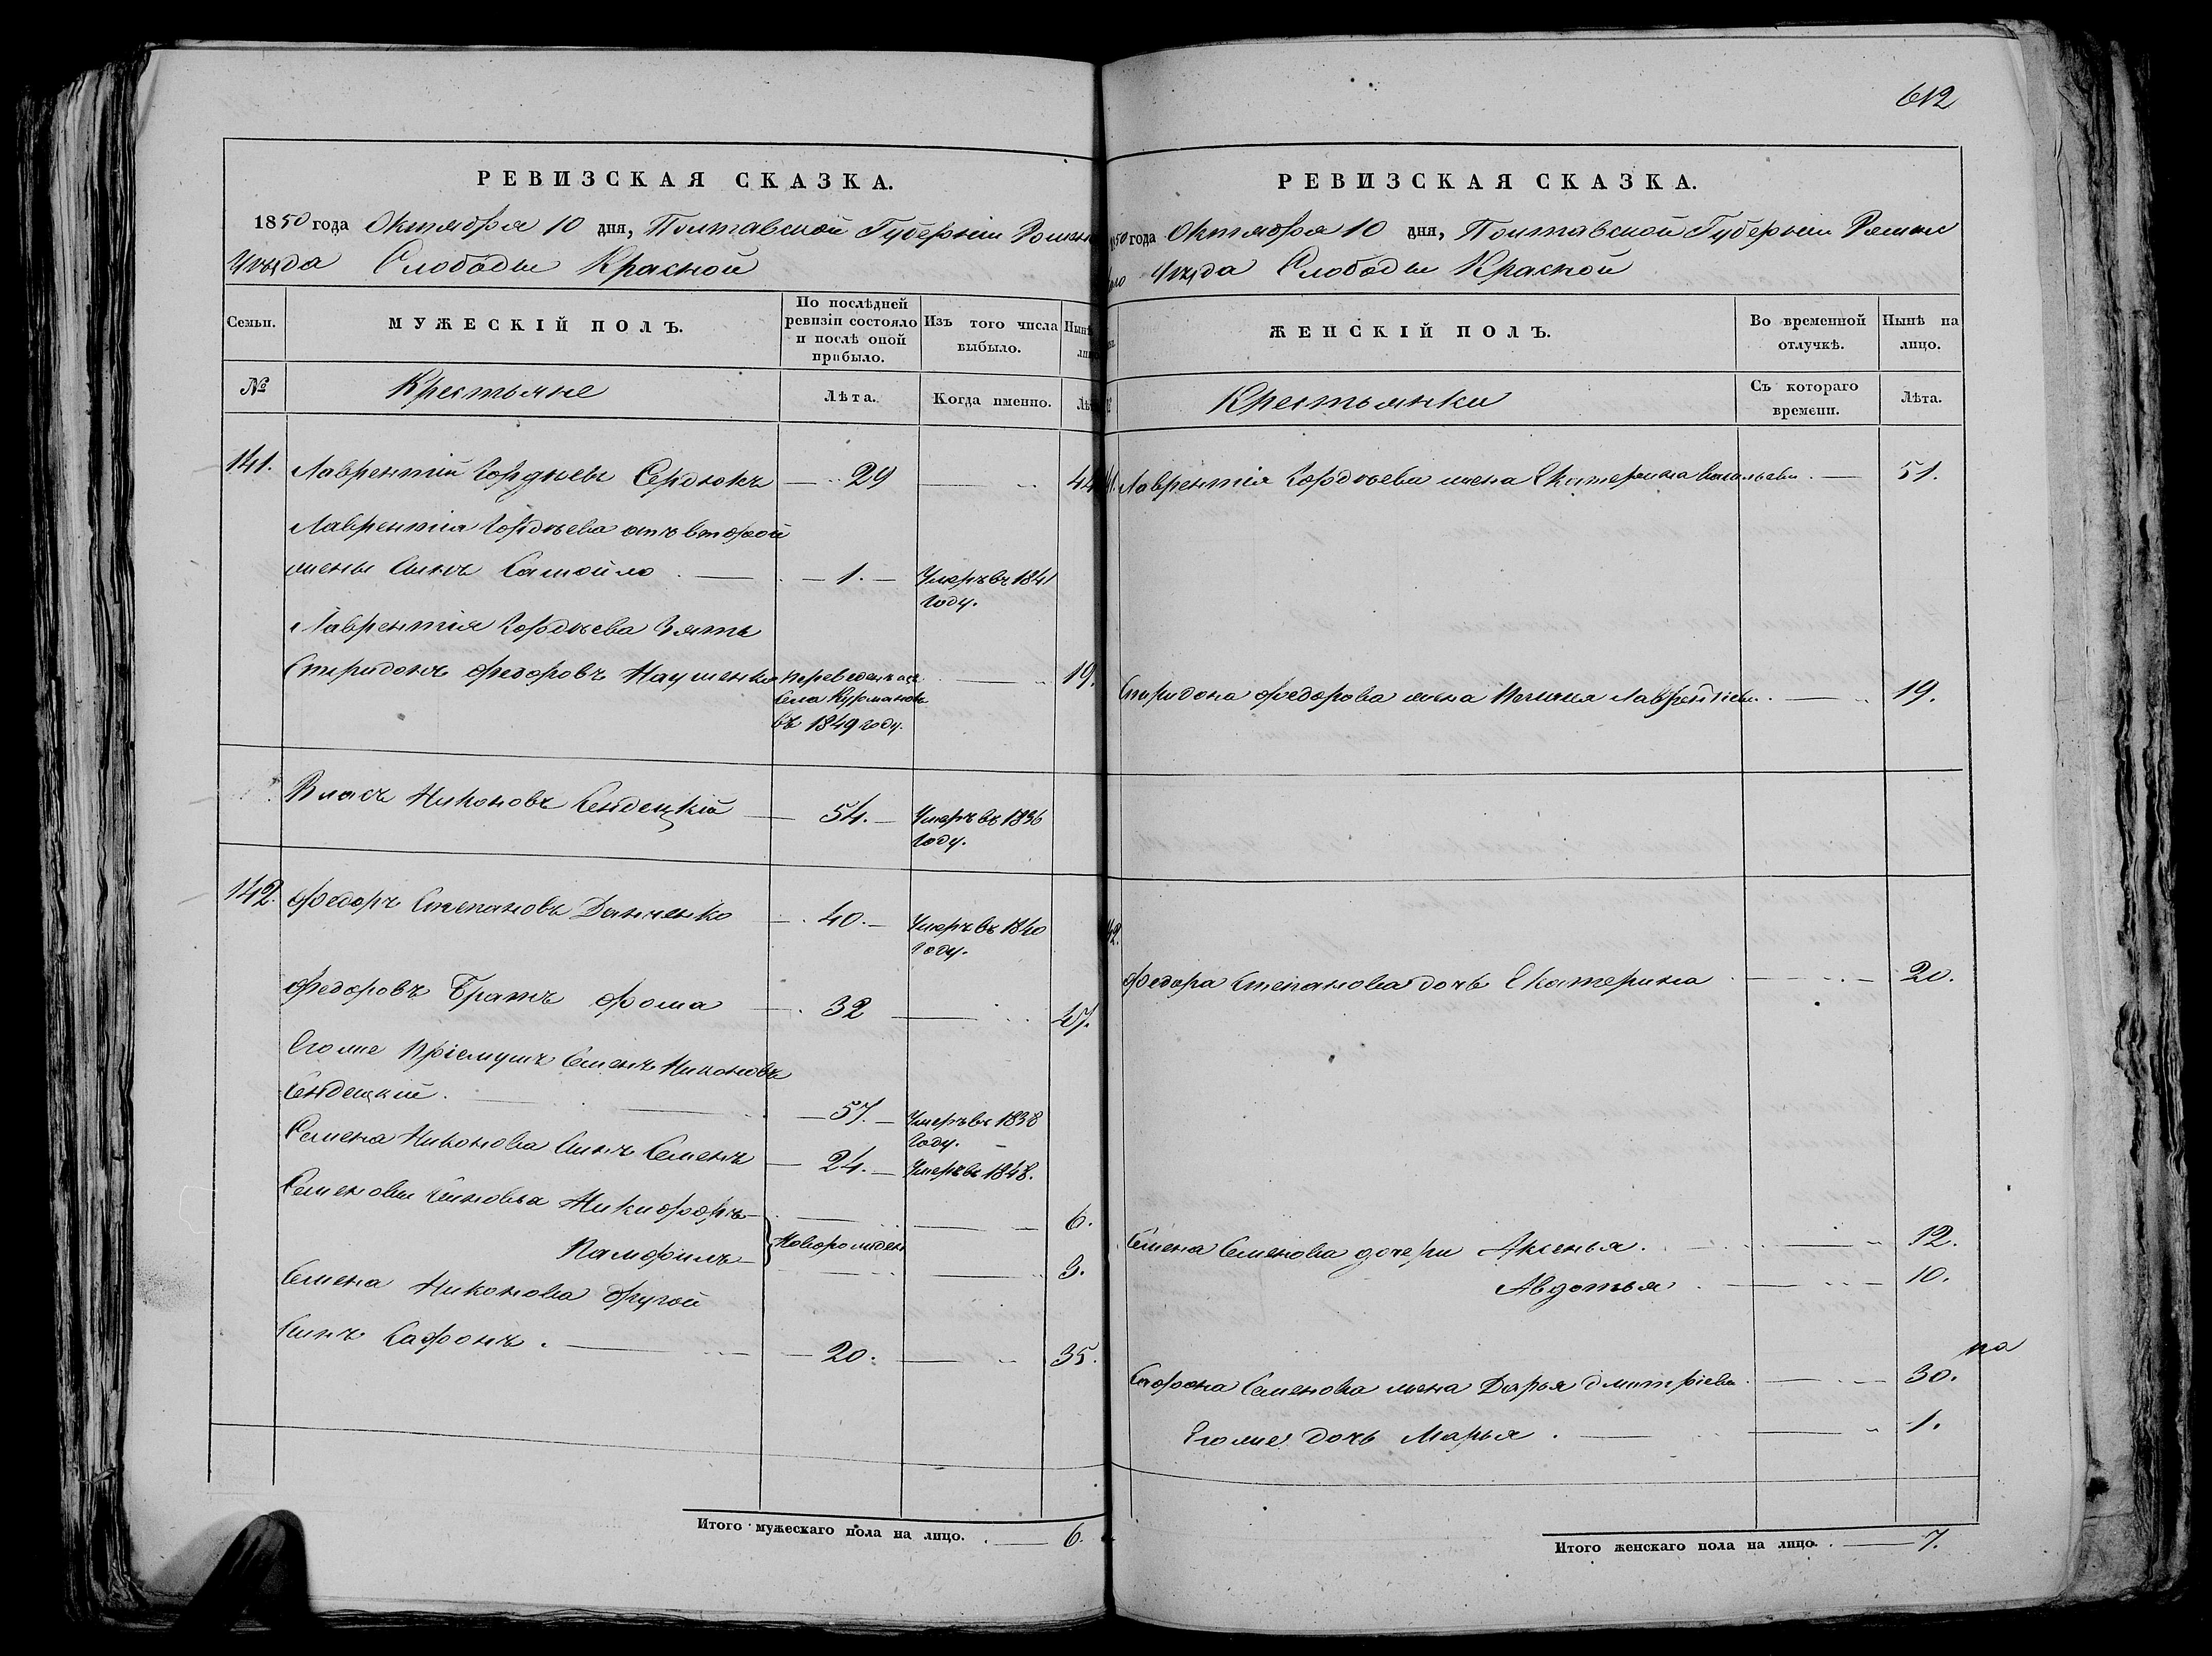 612
РЕВИЗСКАЯ СКАЗКА.
1850 года Октября 10 дня, Полтавской Губерніи Ромен
Уѣзда Слободы Красной
Семьи.
МУЖЕСКІЙ ПОЛЪ.
По послѣдней ревизіи состояло и послѣ оной прибыло.
Изъ того числа выбыло.
№
Крестьяне
Лѣта.
Когда именно.
141. Лаврентій Гордѣевъ Сердюкъ — 29 — 44
Лаврентія Гордѣева отъ второй
жены Сынъ Самойло — 1. — Умеръ въ 1841
Году.
Лаврентія Гордѣева Зять
Спиридонъ Федоровъ Наушенко переведенъ изъ — 19.
Села Курманов
въ 1849 году.
Власъ Никоновъ Сендецкій — 54. — Умеръ въ 1836
Году.
142. Федоръ Степановъ Данченко — 40. — Умеръ въ 1840
Году.
Федоровъ Братъ Фома — 32 — 47.
Егоже Пріемышъ Семенъ Никоновъ
Сендецкій. — 57. — Умеръ въ 1838
Году.
Семена Никонова Сынъ Семенъ — 24. — Умеръ въ 1848.
Семеновы Сыновья Никифоръ — 6.
Новорожден
Памфилъ — 3.
Семена Никонова другой
Сынъ Сафонъ. — 20. — 35.
Итого мужескаго пола на лицо. — 6.
РЕВИЗСКАЯ СКАЗКА.
1850 года Октября 10 дня, Полтавской Губерніи Ромен
Уѣзда Слободы Красной
ЖЕНСКІЙ ПОЛЪ.
Во временной отлучкѣ.
Нынѣ на лицо.
Крестьянки
Съ котораго времени.
Лѣта.
Лаврентія Гордѣева жена Екатерина Васильева. — 51.
Спиридона Федорова жена Лаврентіева. — 19.
42.
Федора Степанова дочь Екатерина — 20.
Семена Семенова дочери Аксенья. — 12.
Авдотья — 10.
на
Сафона Семенова жена Дарья Дмитріева — 30.
Егоже дочь Марья. — 1.
Итого женскаго пола на лицо. — 7.